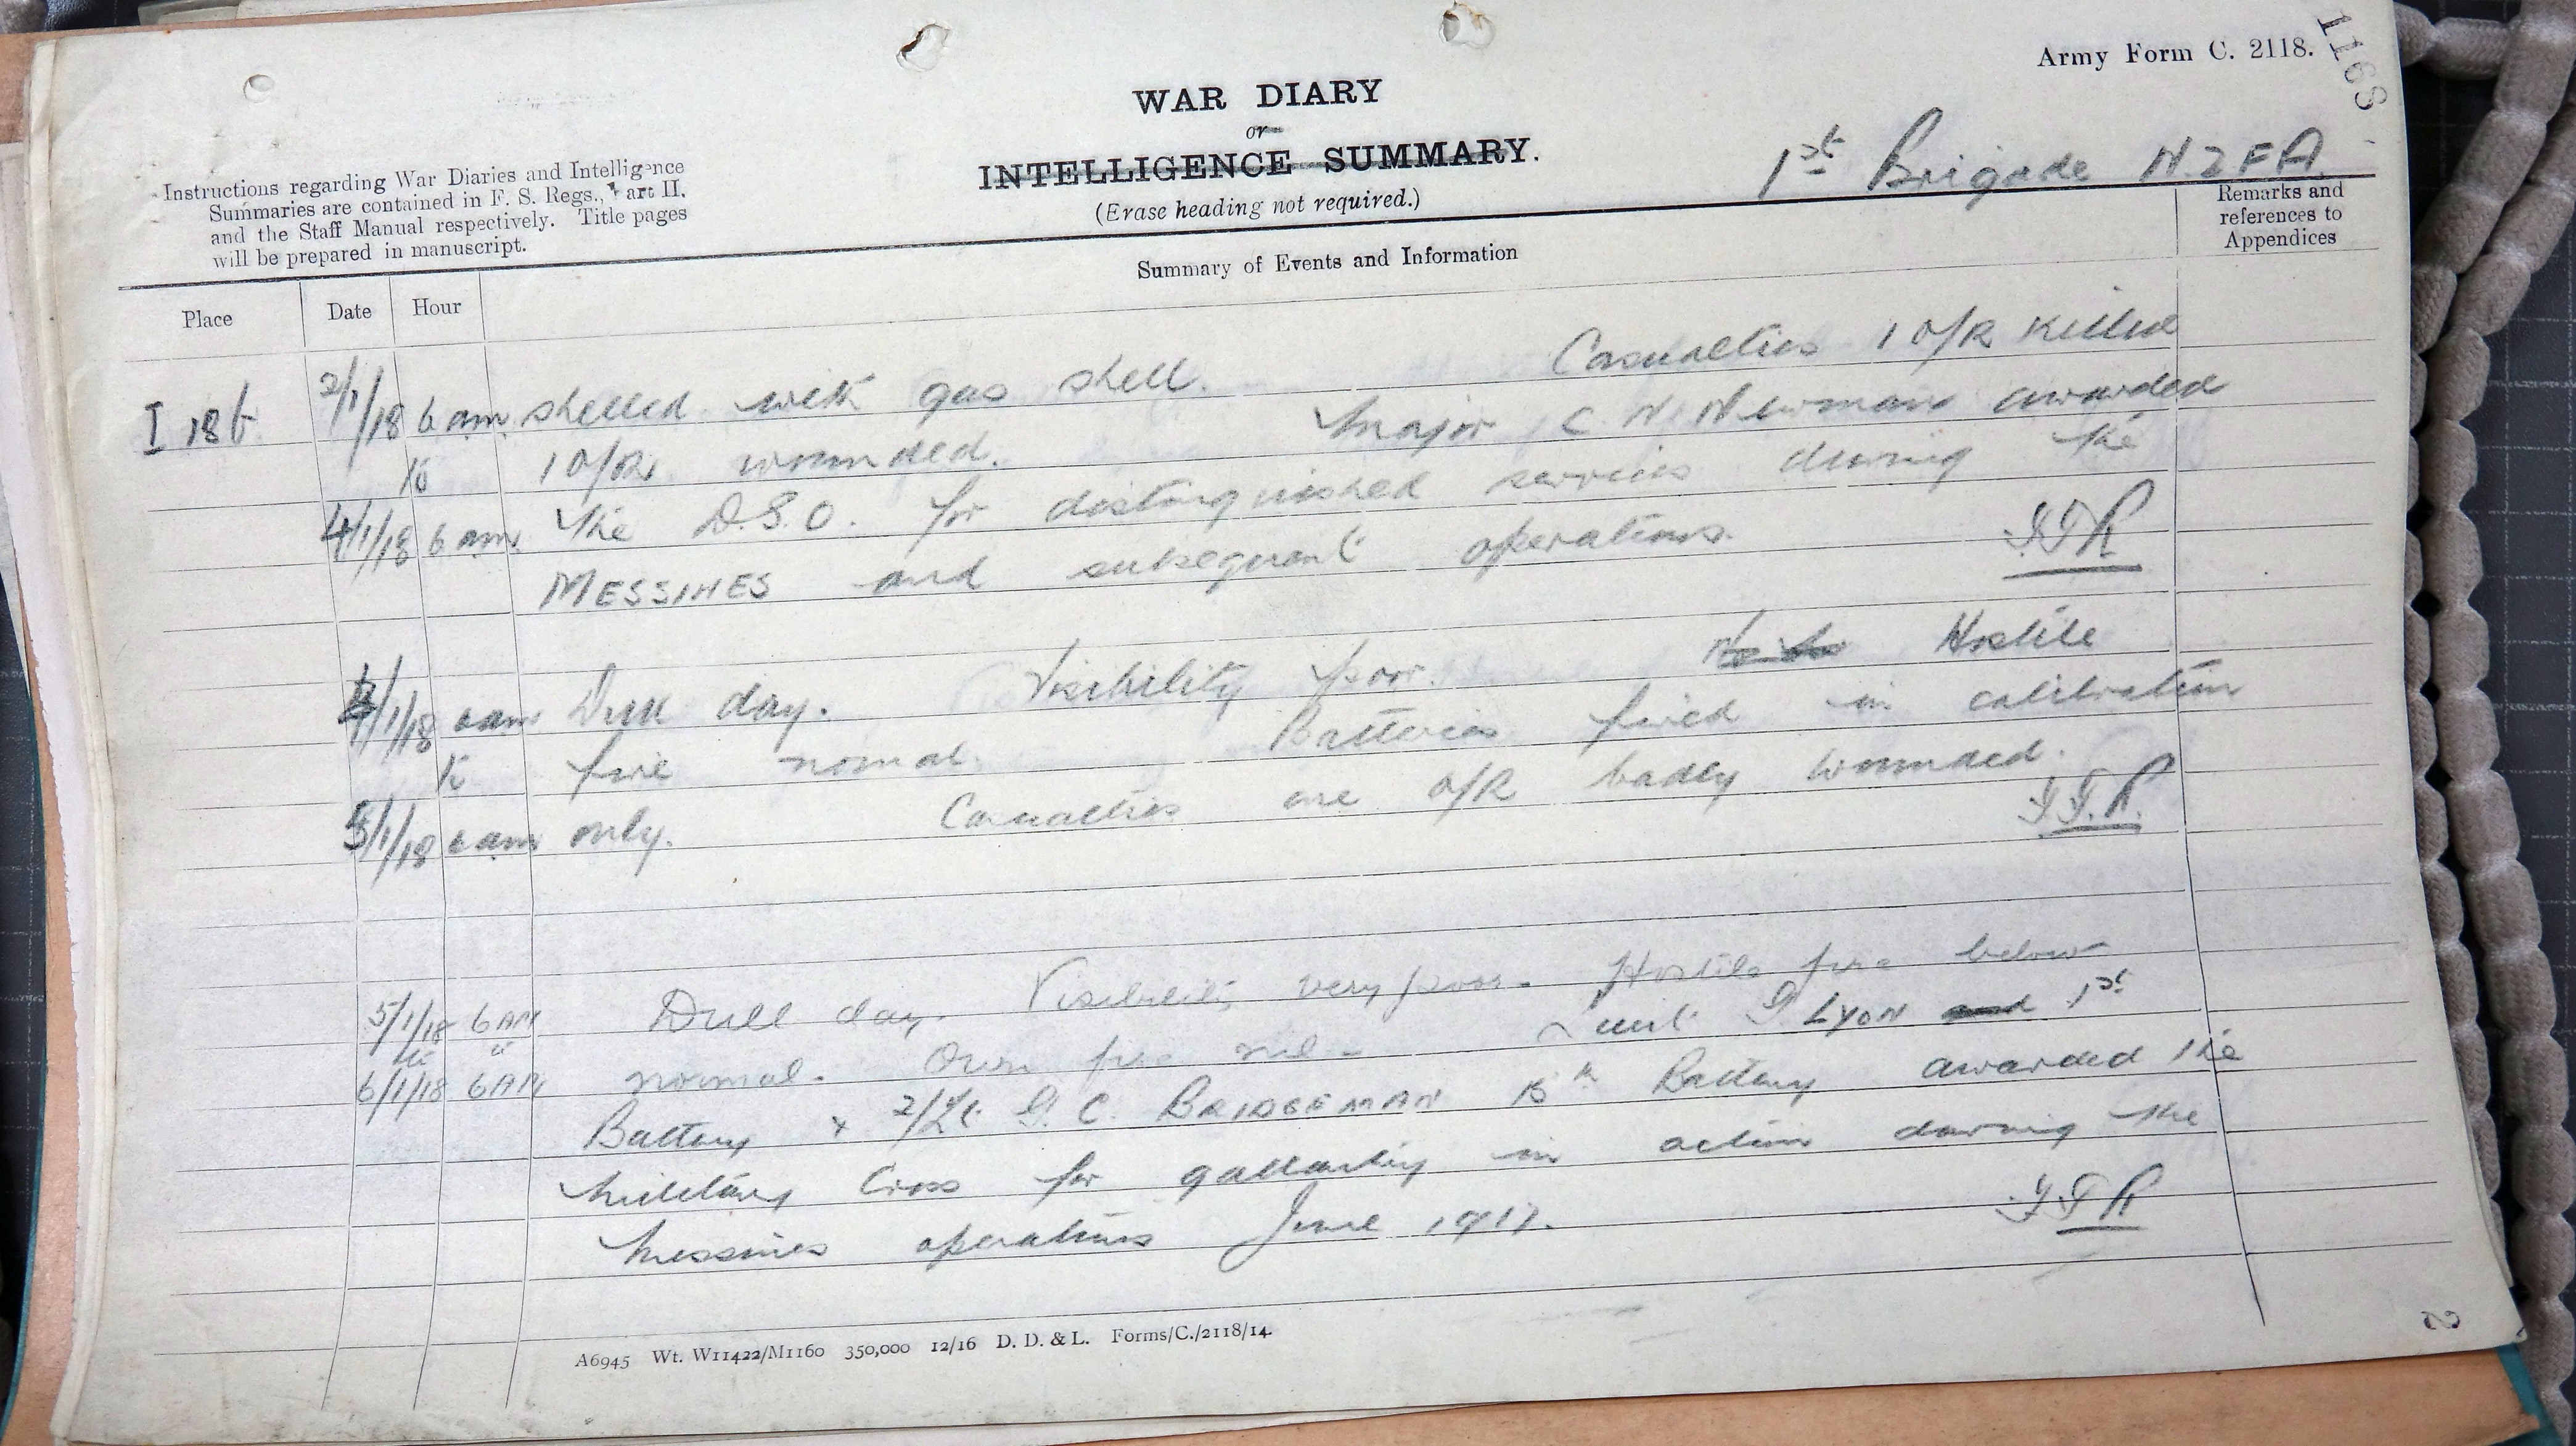 Army Form C. 2118.
1168
WAR DIARY
or
INTELLIGENCE SUMMARY.
(Erase heading not required.)
1st Brigade N.Z.F.A.
Instructions regarding War Diaries and Intelligence
Summaries are contained in F. S. Regs., Part II.
and the Staff Manual respectively. Title pages
will be prepared in manuscript.
Summary of Events and Information
Remarks and
references to
Appendices
Place Date Hour
I 18 b 2/1/18 6 am shelled with gas shell. Casualties 1 O/R killed
to 1 O/R wounded. Major C N Newman awarded
4/1/18 6 am. the D.S.O. for distinguished services during the
MESSINES and subsequent operations.
4/1/18 6am Dull day. Visibility poor. Hostile
to fire normal. Batteries fired in calibration
5/1/18 6am only. Casualties one O/R badly wounded.
5/1/18 6AM Dull day. Visibility very poor. Hostile fire below
to " normal. Own fire nil - Lieut G LYON and 1st
6/1/18 6AM Battery + 2/Lt. G. C BRIDGEMAN 15th Battery awarded the
Military Cross for gallantry in action during the
Messines operations June 1917.
A6945 Wt. W11422/M1160 350,000 12/16 D. D. & L. Forms/C./2118/14.
2